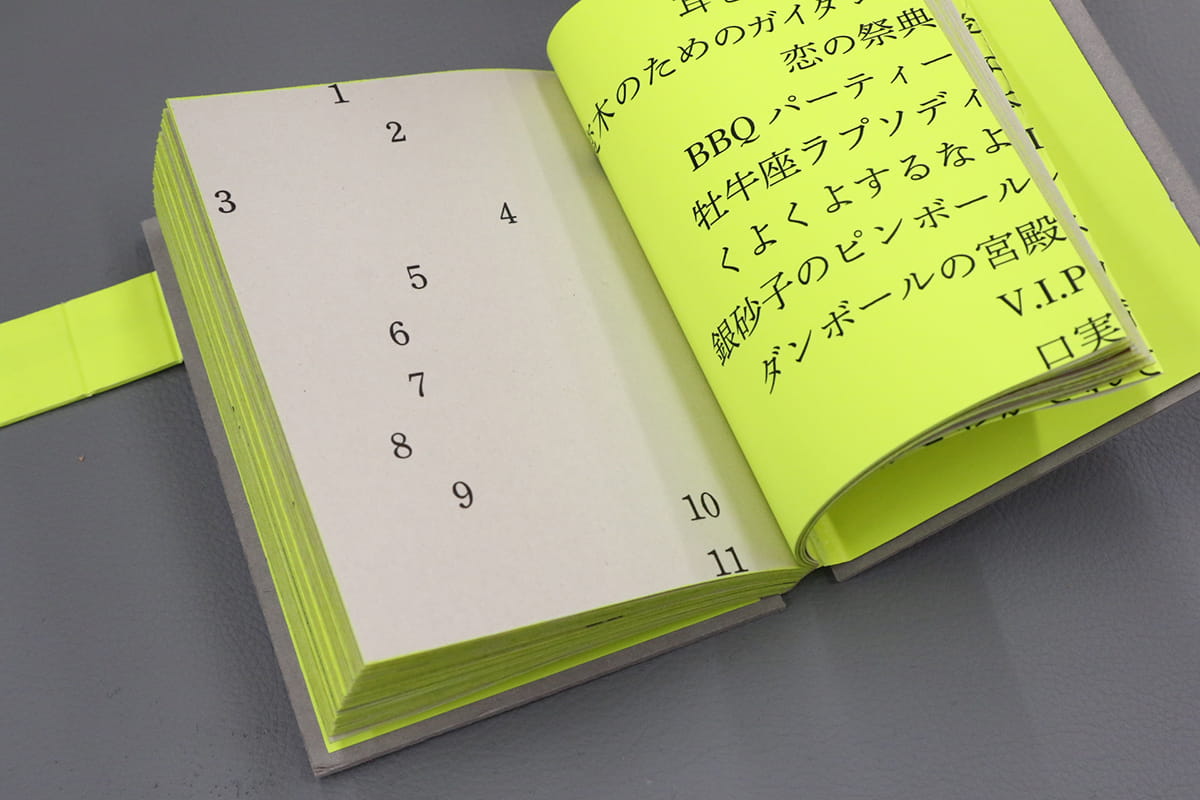 1
2
3
4
5
6
7
8
9
10
11
木のためのガイダ
恋の祭典
BBQ パーティー
牡牛座ラプソディ
くよくよするなよ
銀砂子のピンボール
ダンボールの宮殿
V.I.P
口実